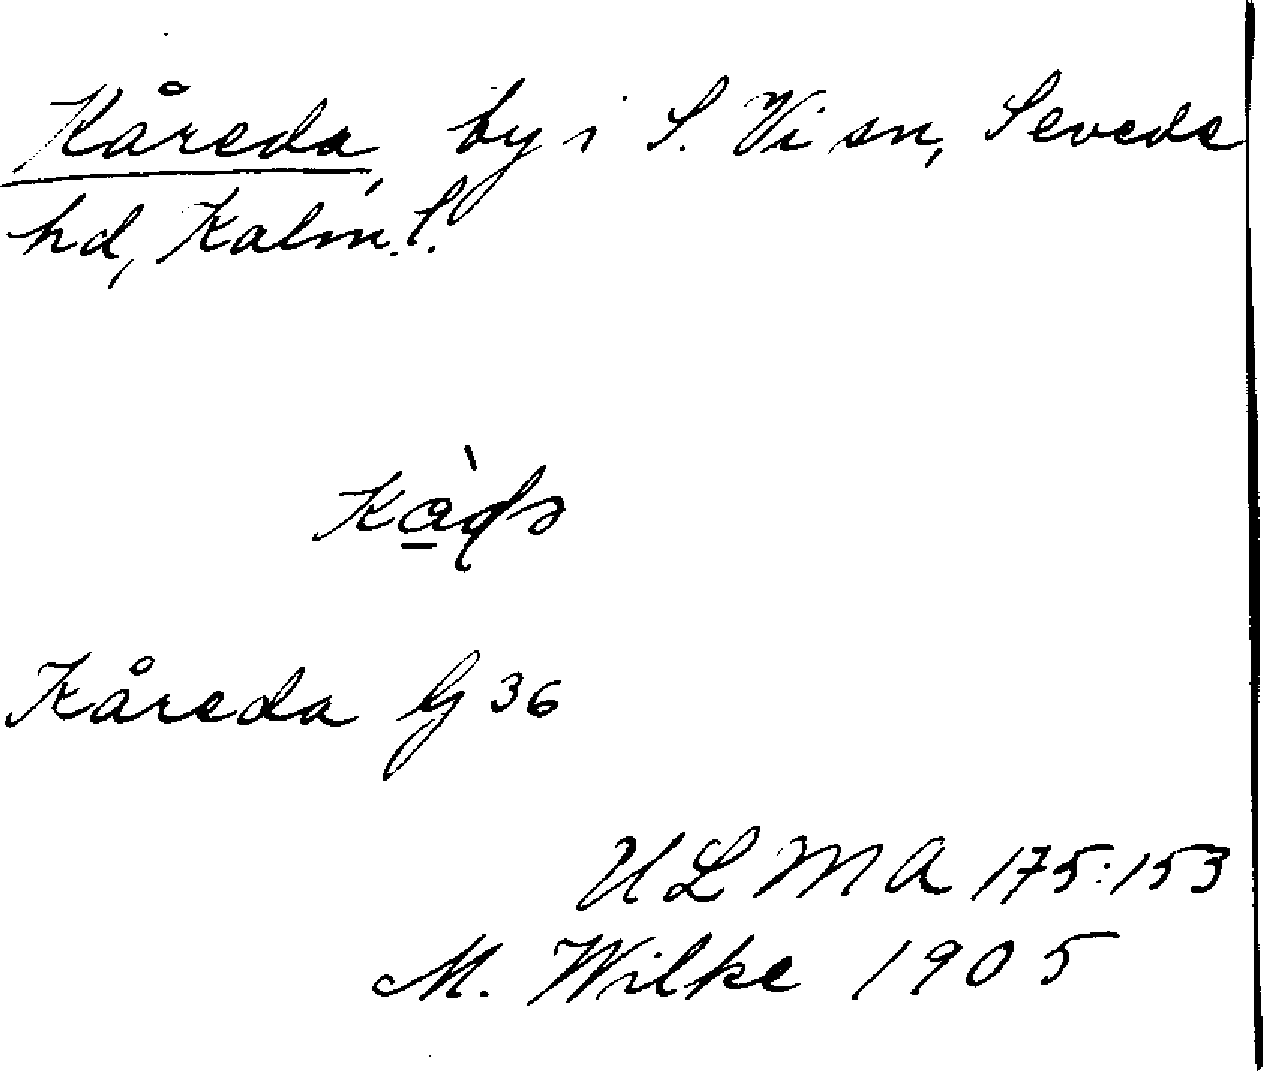 Kåreda, by i S. Vi sn, Sevede
hd, Kalm. l.
Kåreda G 36
ULMA 175:153
M. Wilke 1905